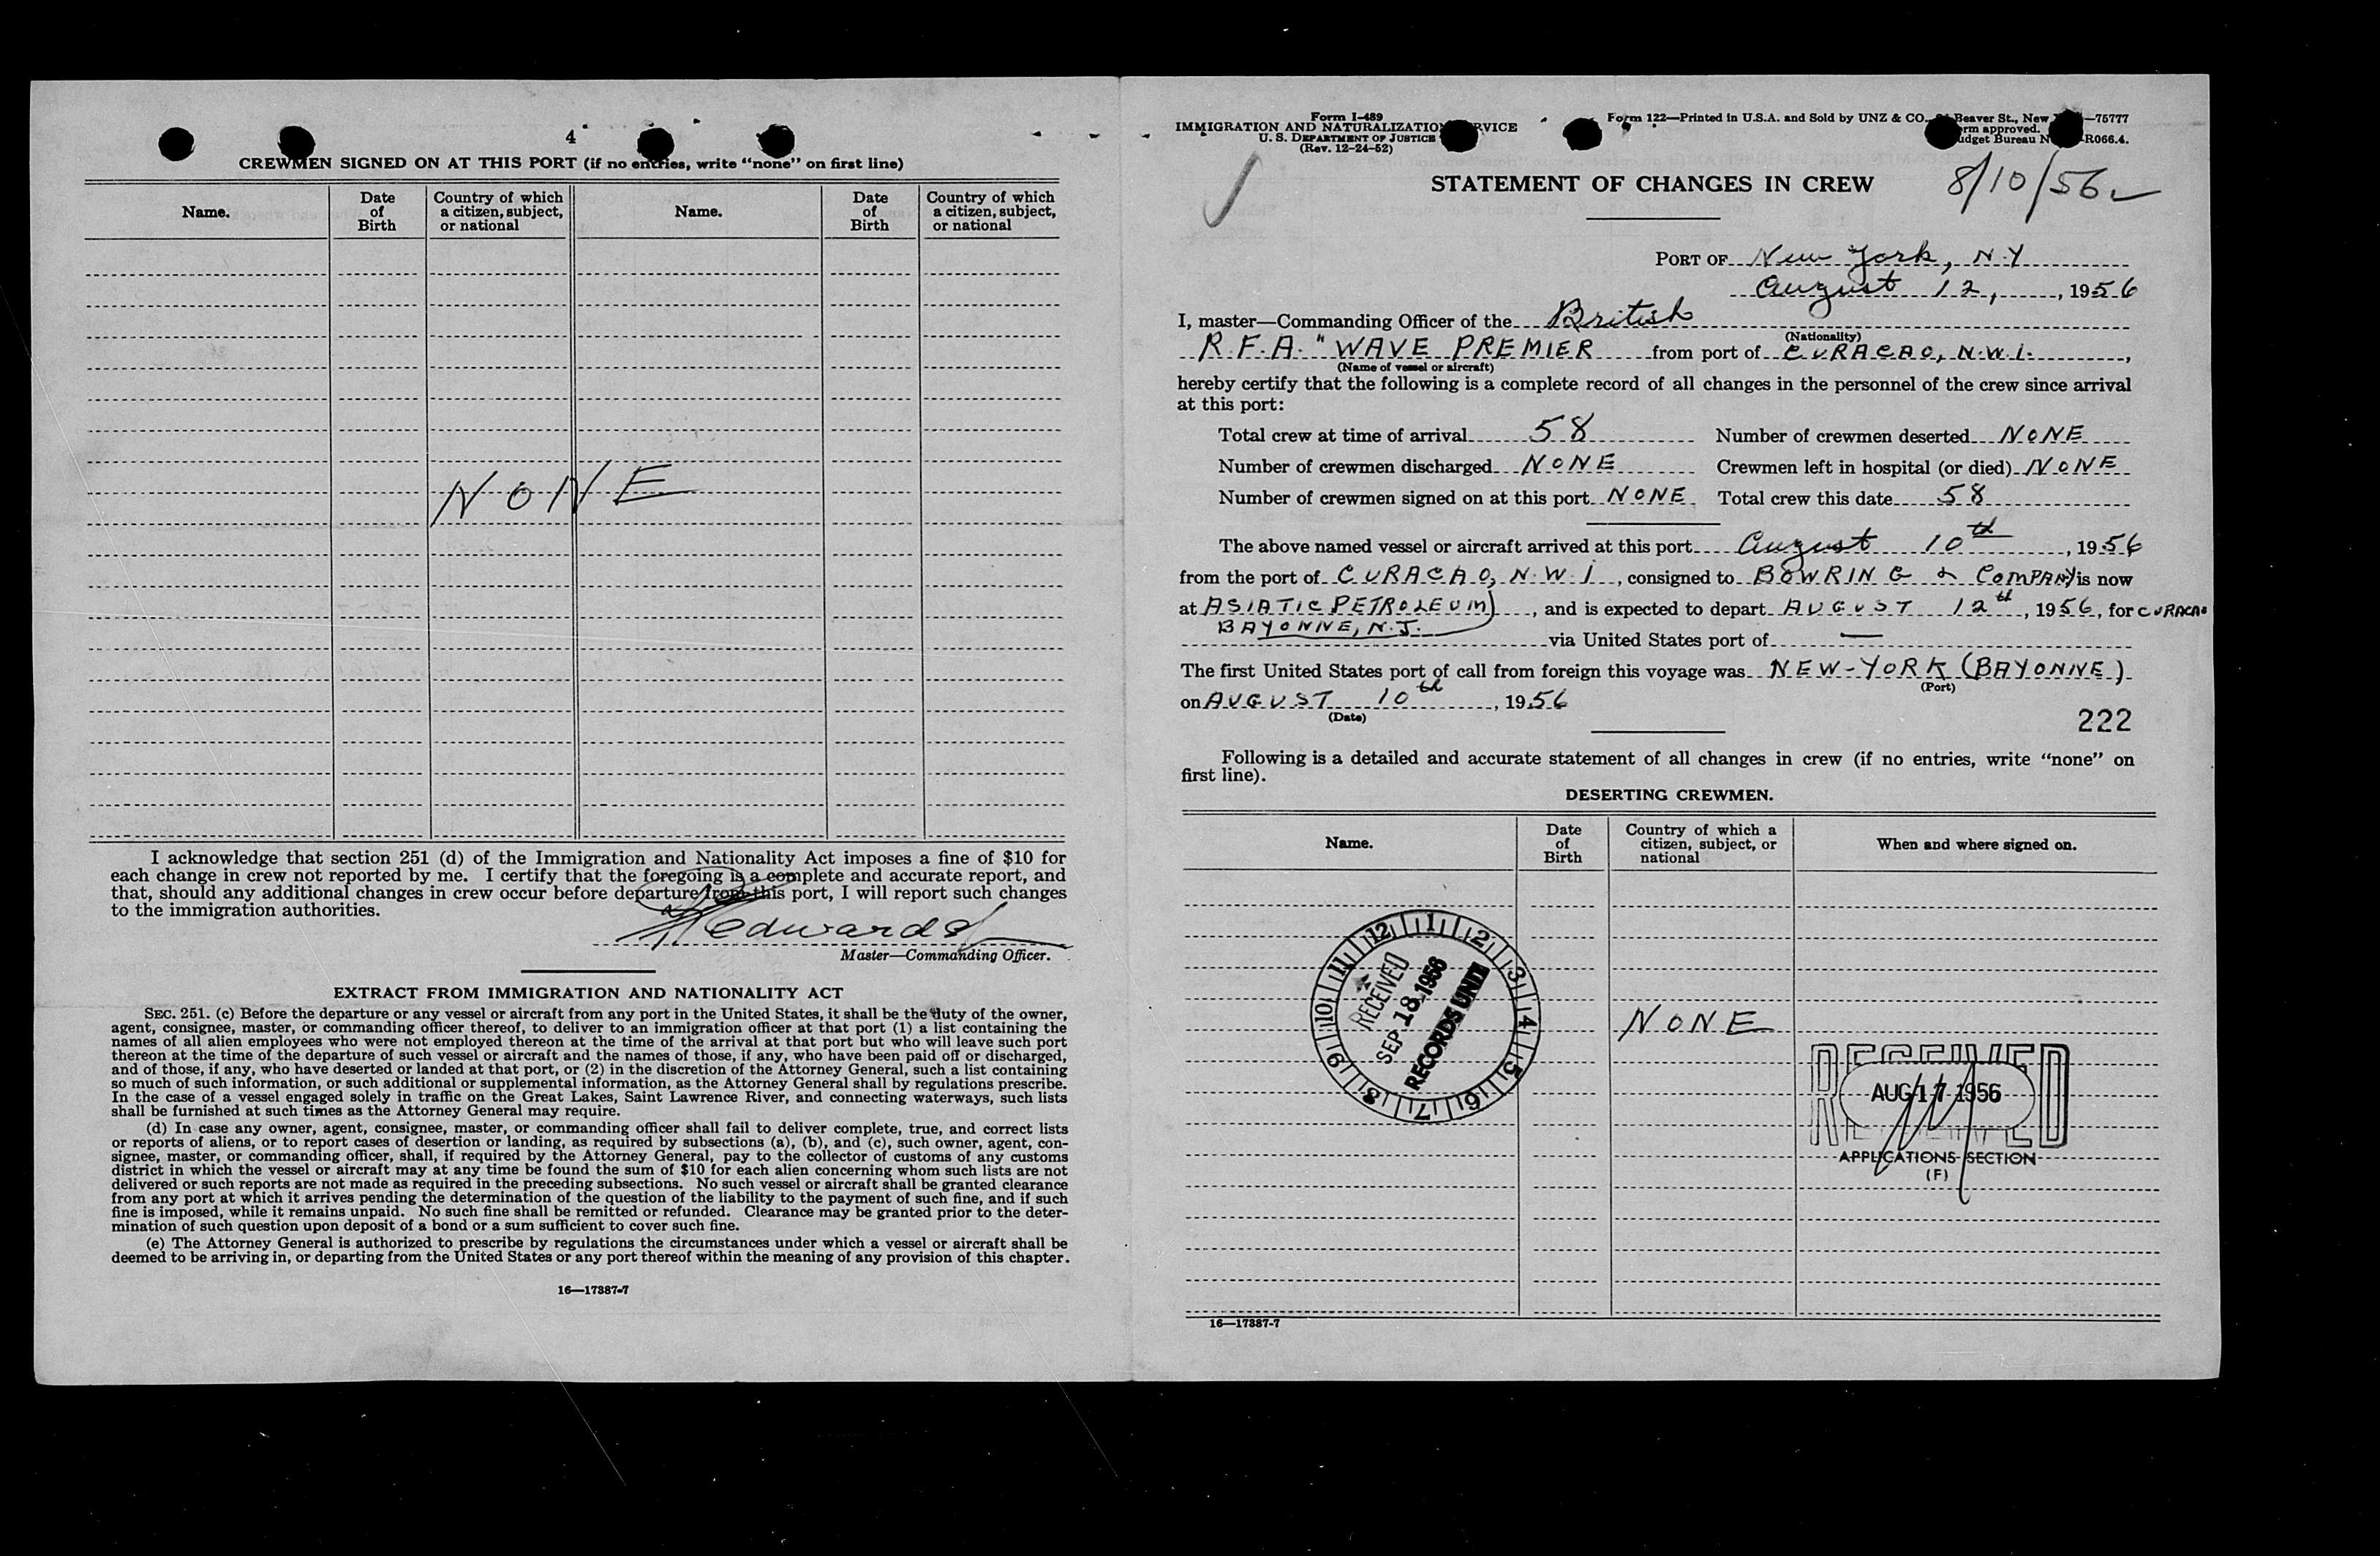 4
CREWMEN SIGNED ON AT THIS PORT (if no entries, write “none” on first line)
Name.
Date of Birth
Country of which a citizen, subject, or national
Name.
Date of Birth
Country of which a citizen, subject, or national
NONE
I acknowledge that section 251 (d) of the Immigration and Nationality Act imposes a fine of $10 for
each change in crew not reported by me. I certify that the foregoing is a complete and accurate report, and
that, should any additional changes in crew occur before departure from this port, I will report such changes
to the immigration authorities.
Edwards
Master—Commanding Officer.
EXTRACT FROM IMMIGRATION AND NATIONALITY ACT
SEC. 251. (c) Before the departure or any vessel or aircraft from any port in the United States, it shall be the duty of the owner,
agent, consignee, master, or commanding officer thereof, to deliver to an immigration officer at that port (1) a list containing the
names of all alien employees who were not employed thereon at the time of the arrival at that port but who will leave such port
thereon at the time of the departure of such vessel or aircraft and the names of those, if any, who have been paid off or discharged,
and of those, if any, who have deserted or landed at that port, or (2) in the discretion of the Attorney General, such a list containing
so much of such information, or such additional or supplemental information, as the Attorney General shall by regulations prescribe.
In the case of a vessel engaged solely in traffic on the Great Lakes, Saint Lawrence River, and connecting waterways, such lists
shall be furnished at such times as the Attorney General may require.
(d) In case any owner, agent, consignee, master, or commanding officer shall fail to deliver complete, true, and correct lists
or reports of aliens, or to report cases of desertion or landing, as required by subsections (a), (b), and (c), such owner, agent, con-
signee, master, or commanding officer, shall, if required by the Attorney General, pay to the collector of customs of any customs
district in which the vessel or aircraft may at any time be found the sum of $10 for each alien concerning whom such lists are not
delivered or such reports are not made as required in the preceding subsections. No such vessel or aircraft shall be granted clearance
from any port at which it arrives pending the determination of the question of the liability to the payment of such fine, and if such
fine is imposed, while it remains unpaid. No such fine shall be remitted or refunded. Clearance may be granted prior to the deter-
mination of such question upon deposit of a bond or a sum sufficient to cover such fine.
(e) The Attorney General is authorized to prescribe by regulations the circumstances under which a vessel or aircraft shall be
deemed to be arriving in, or departing from the United States or any port thereof within the meaning of any provision of this chapter.
16—17387-7
Form I-489
IMMIGRATION AND NATURALIZATION SERVICE
U. S. DEPARTMENT OF JUSTICE
(Rev. 12-24-52)
Form 122—Printed in U.S.A. and Sold by UNZ & CO. Beaver St., New —75777
Form approved.
Budget Bureau R066.4.
STATEMENT OF CHANGES IN CREW
8/10/56
PORT OF New York, N.Y
August 12, , 1956
I, master—Commanding Officer of the British
(Nationality)
R.F.A. "WAVE PREMIER from port of CURACAO, N.W.I. ,
(Name of vessel or aircraft)
hereby certify that the following is a complete record of all changes in the personnel of the crew since arrival
at this port:
Total crew at time of arrival 58 Number of crewmen deserted NONE
Number of crewmen discharged NONE Crewmen left in hospital (or died) NONE
Number of crewmen signed on at this port NONE Total crew this date 58
The above named vessel or aircraft arrived at this port August 10th , 1956
from the port of CURACAO, N.W.I , consigned to BOWRING & COMPANY is now
at ASIATIC PETROLEUM) , and is expected to depart AUGUST 12th , 1956, for CURACAO
BAYONNE, N.J. via United States port of —
The first United States port of call from foreign this voyage was NEW-YORK (BAYONNE)
(Port)
on AUGUST 10th , 1956
(Date)
222
Following is a detailed and accurate statement of all changes in crew (if no entries, write “none” on
first line).
DESERTING CREWMEN.
Name.
Date of Birth
Country of which a citizen, subject, or national
When and where signed on.
NONE
12 1 2 3 4 5 6 7 8 9 10 11
RECEIVED
SEP 18 1956
RECORDS UNIT
RECEIVED
AUG 17 1956
APPLICATIONS SECTION
(F)
16—17387-7